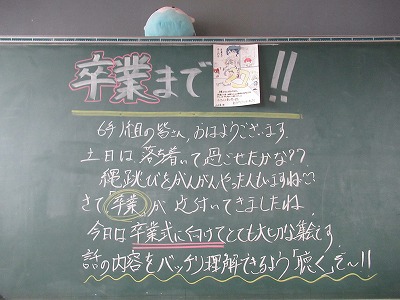 卒業まで 23 !!
6年1組の皆さん、おはようございます。
土日は落ち着いて過ごせたかな??
縄跳びをがんがんやった人いますね
さて卒業が近付いてきましたね
今日は卒業式に向けてとても大切な集会です。
話の内容をバッチリ理解できるよう「聴く」ぞ〜!!